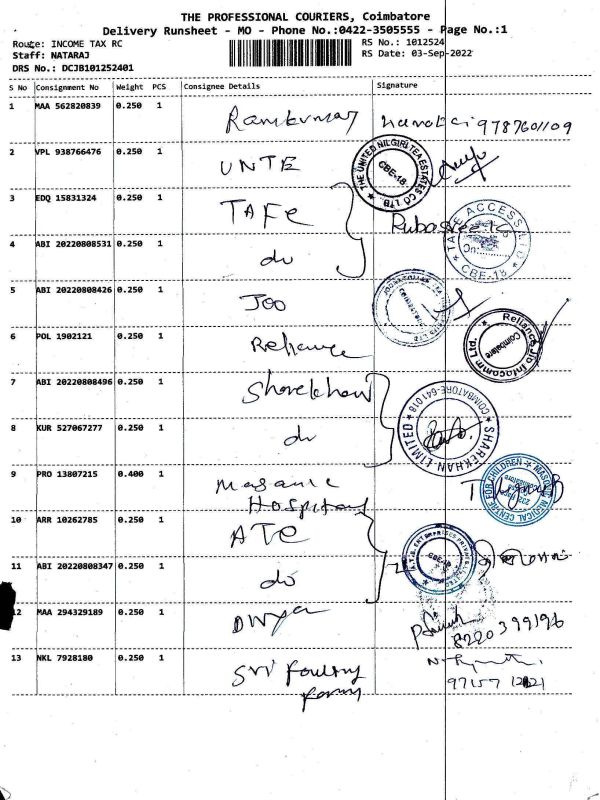 THE PROFESSIONAL COURIERS, Coimbatore
Delivery Runsheet - MO - Phone No.:0422-3505555 - Page No.:1
Route: INCOME TAX RC
RS No.: 1012524
Staff: NATARAJ
RS Date: 03-Sep-2022
DRS No.: DCJB101252401
S No Consignment No Weight PCS Consignee Details Signature
1 MAA 562820839 0.250 1 Ramkumar 9787601109
2 VPL 938766476 0.250 1 UNTE
THE UNITED NILGIRI TEA ESTATES CO LTD. CBE-18.
3 EDQ 15831324 0.250 1 TAFe
TAFE ACCESS LTD CBE-18
4 ABI 20220808531 0.250 1 do
5 ABI 20220808426 0.250 1 Joo
6 POL 1902121 0.250 1 Reliance
Reliance Jio Infocomm Ltd. Coimbatore
7 ABI 20220808496 0.250 1 Sharekhan
SHAREKHAN LIMITED COIMBATORE-641 018
8 KUR 527067277 0.250 1 do
9 PRO 13807215 0.400 1 Masanic
Hospital
MASONIC MEDICAL CENTRE FOR CHILDREN
10 ARR 10262785 0.250 1 ATE
11 ABI 20220808347 0.250 1 do
12 MAA 294329189 0.250 1 Divya
8220399196
13 NKL 7928180 0.250 1 Sri Poultry
Farm
97157